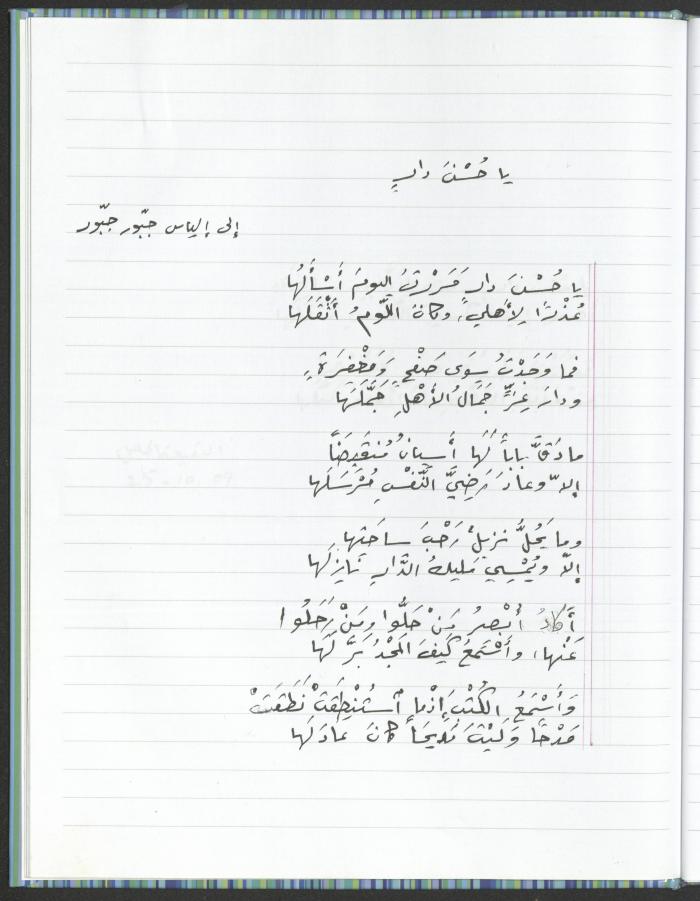 يا حُسْنَ دارٍ
إلى إلياس جبّور جبّور
يا حُسْنَ دارٍ مَرَرْتُ اليومَ أَسْأَلُها
عُذْرًا لِأَهلي، وكانَ اللَّومُ أَثْقَلَها
فما وَجَدْتُ سِوَى صَفْحٍ وَمَغْفِرَةٍ
ودارَ عِزٍّ جَمَالُ الأَهْلِ جَمَّلَها
ما دَقَّ باباً لَها أَسيانُ مُنقَبِضًا
إلاّ وعادَ رَضِيَّ النَّفْسِ مُسْرَسَلَها
وما يَحُلُّ نزيلٌ رَحْبَ ساحَتِها
إلاّ ويُمْسِي مَليكُ الدَّارِ نازِلَها
أَكادُ أُبْصِرُ مَنْ حَلُّوا ومَنْ رَحَلُوا
عَنْها، وأَسْمَعُ كَيفَ المَجْدُ
وَأُسْمَعُ الكُتْبَ إِذْما ٱستُنْطِقَتْ نَطَقَتْ
مَدْحًا وَلَيْتَ مَديحًا كانَ عادَلَها